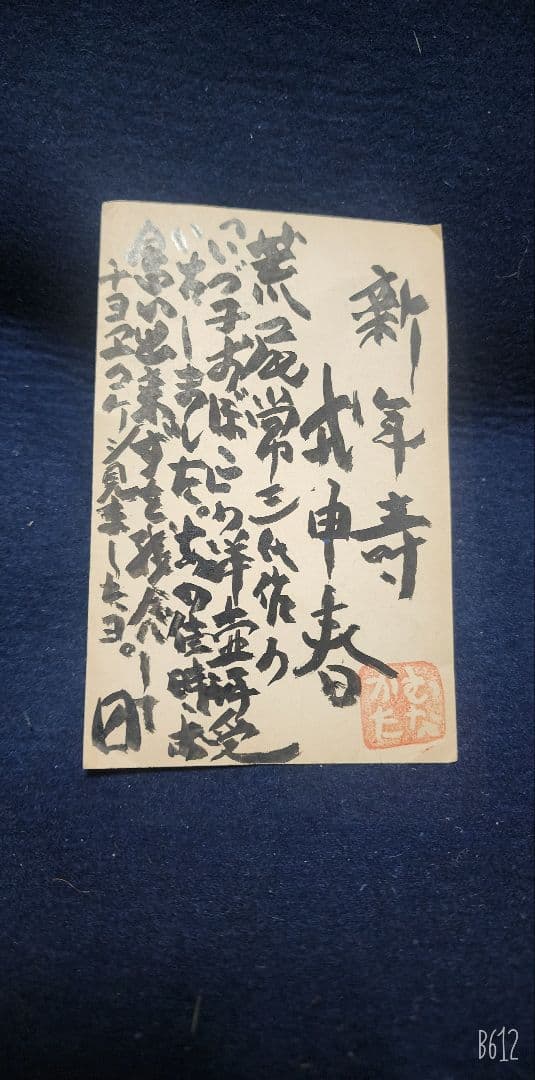 新年寿
戊申春
むなかた
荒尾常三代作の
っいづ子おばこの洋壷拝受
いたしました。あの佳時、お
會い出来ずを残念
チヨヱコケーシ見ましたヨ。
B612